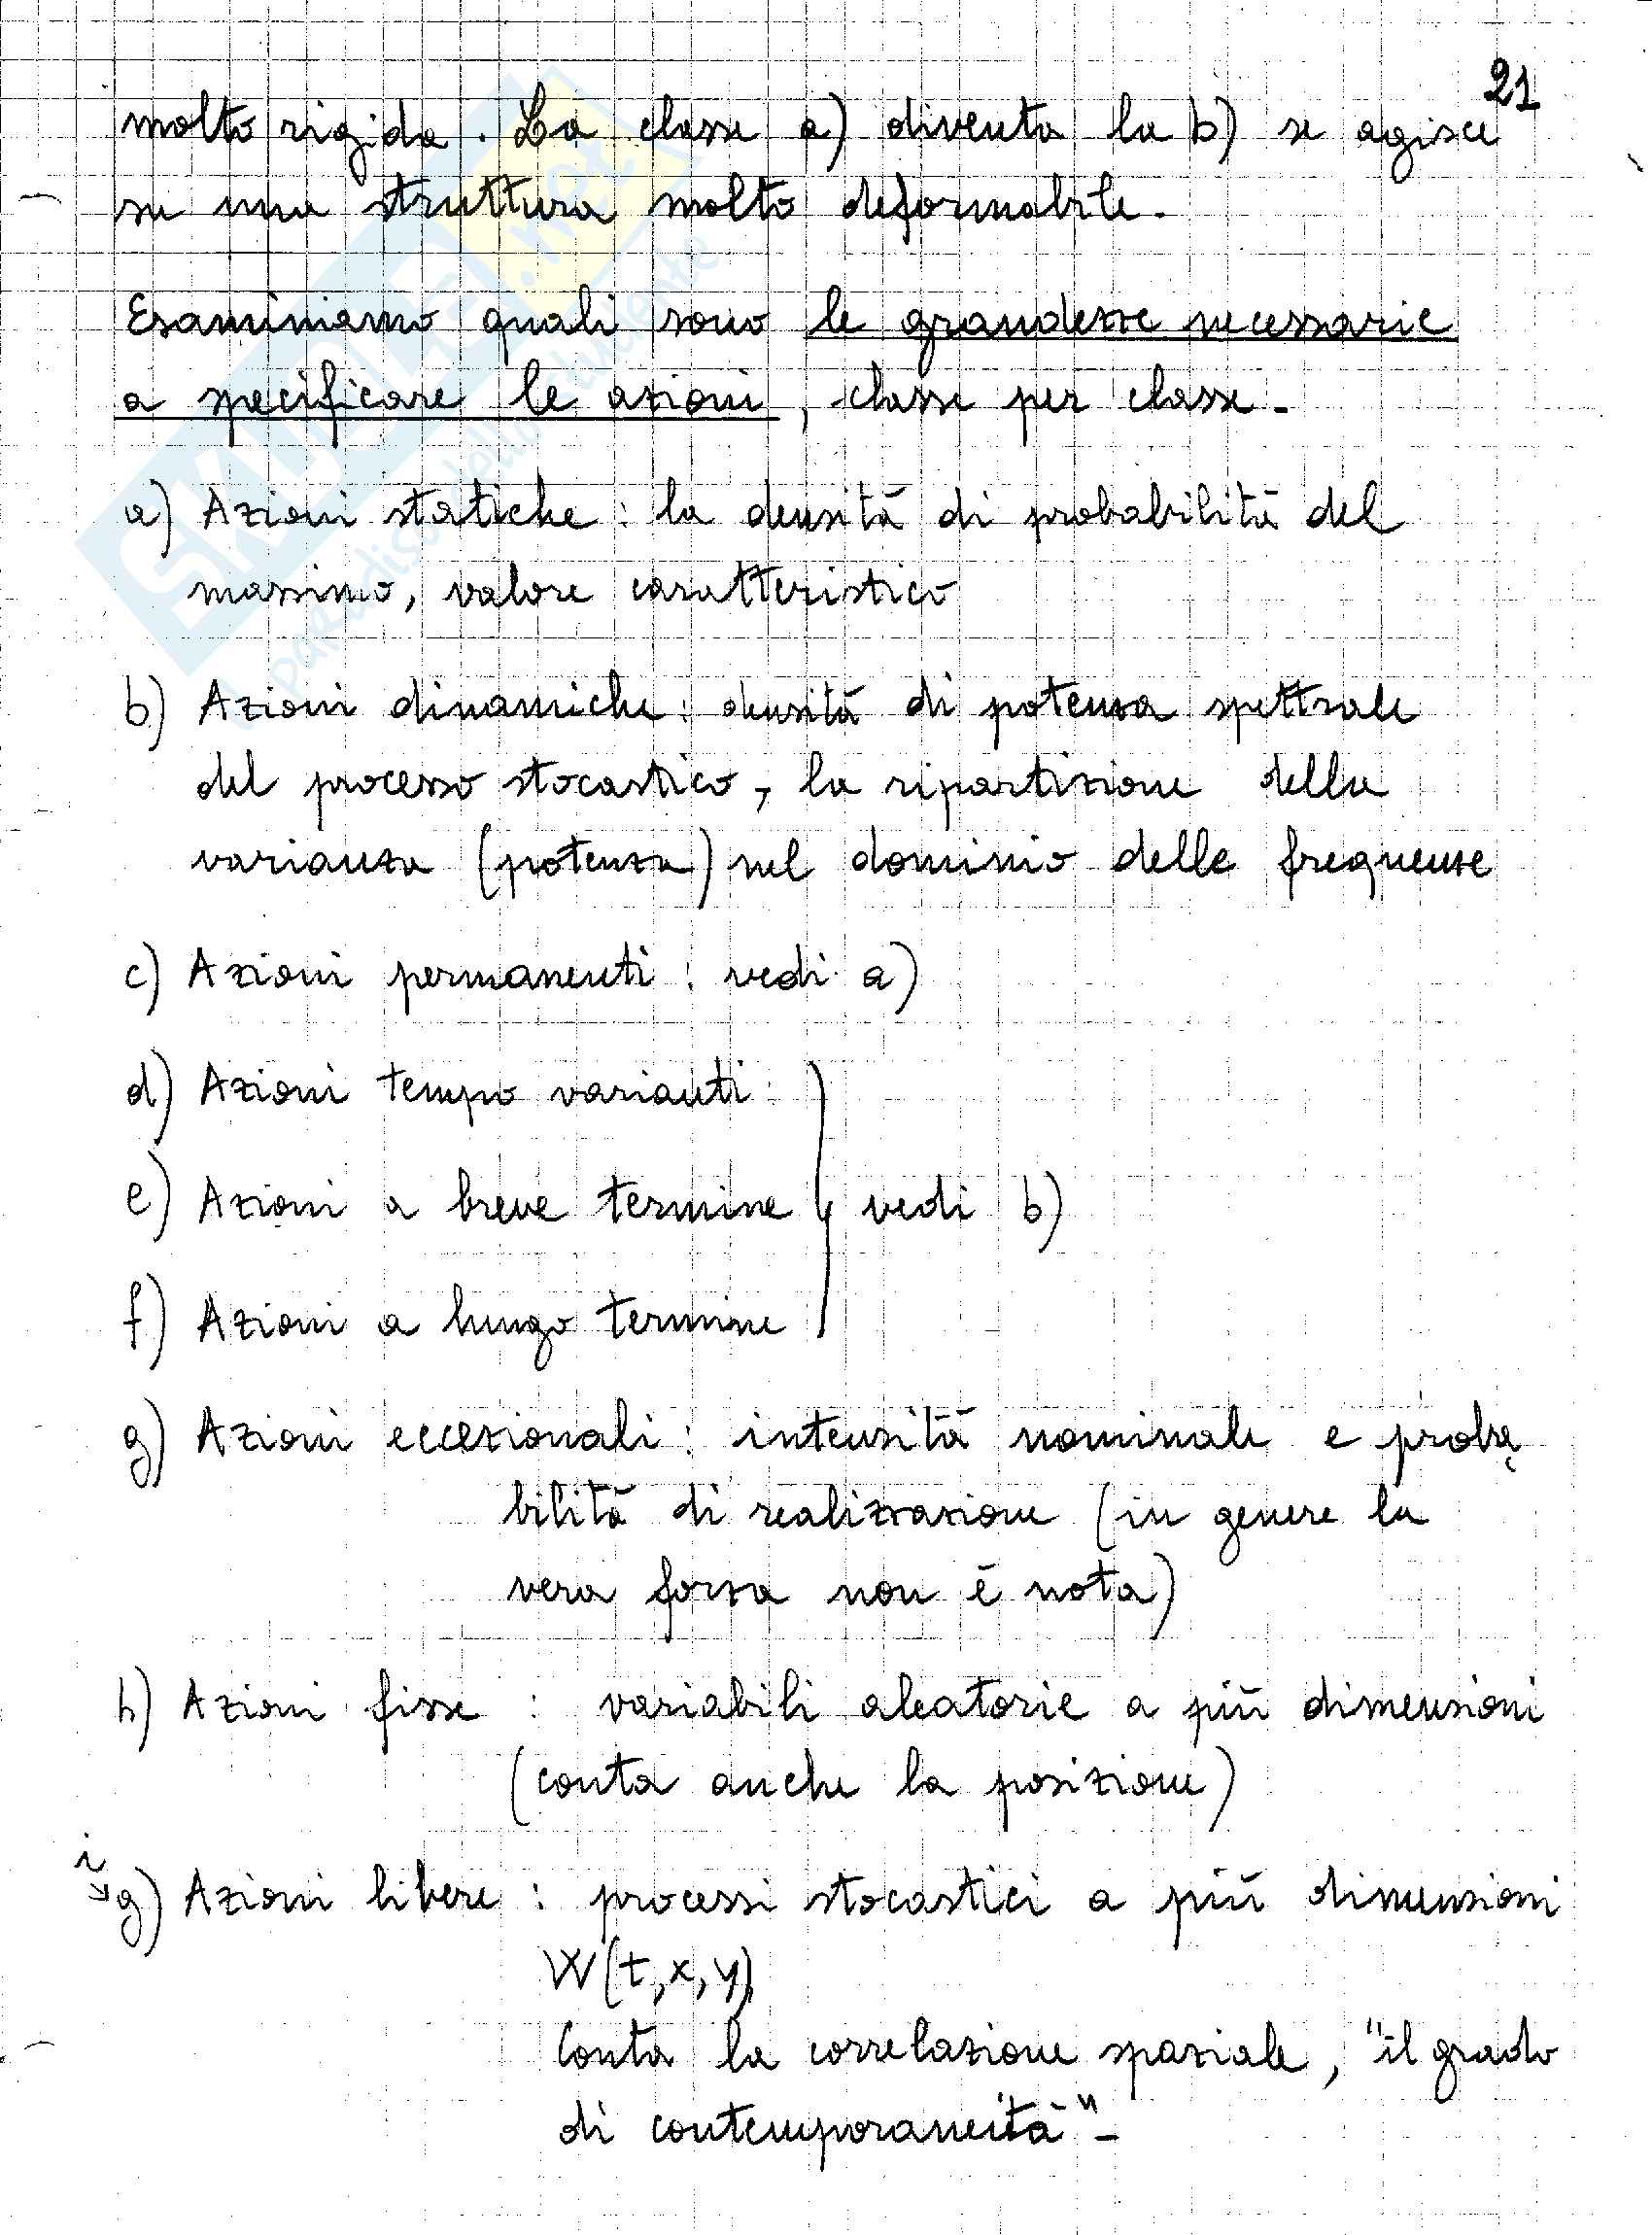 21
molto rigida. La classe a) diventa la b) se agisce
su una struttura molto deformabile.
Esaminiamo quali sono le grandezze necessarie
a specificare le azioni, classe per classe.
a) Azioni statiche: la densità di probabilità del
massimo, valore caratteristico
b) Azioni dinamiche: densità di potenza spettrale
del processo stocastico, la ripartizione della
varianza (potenza) nel dominio delle frequenze
c) Azioni permanenti: vedi a)
d) Azioni tempo varianti
e) Azioni a breve termine } vedi b)
f) Azioni a lungo termine
g) Azioni eccezionali: intensità nominale e proba
bilità di realizzazione (in genere la
vera forza non è nota)
h) Azioni fisse : variabili aleatorie a più dimensioni
(conta anche la posizione)
i
g) Azioni libere : processi stocastici a più dimensioni
W(t,x,y)
Conta la correlazione spaziale, "il grado
di contemporaneità".
SKUOLA.net